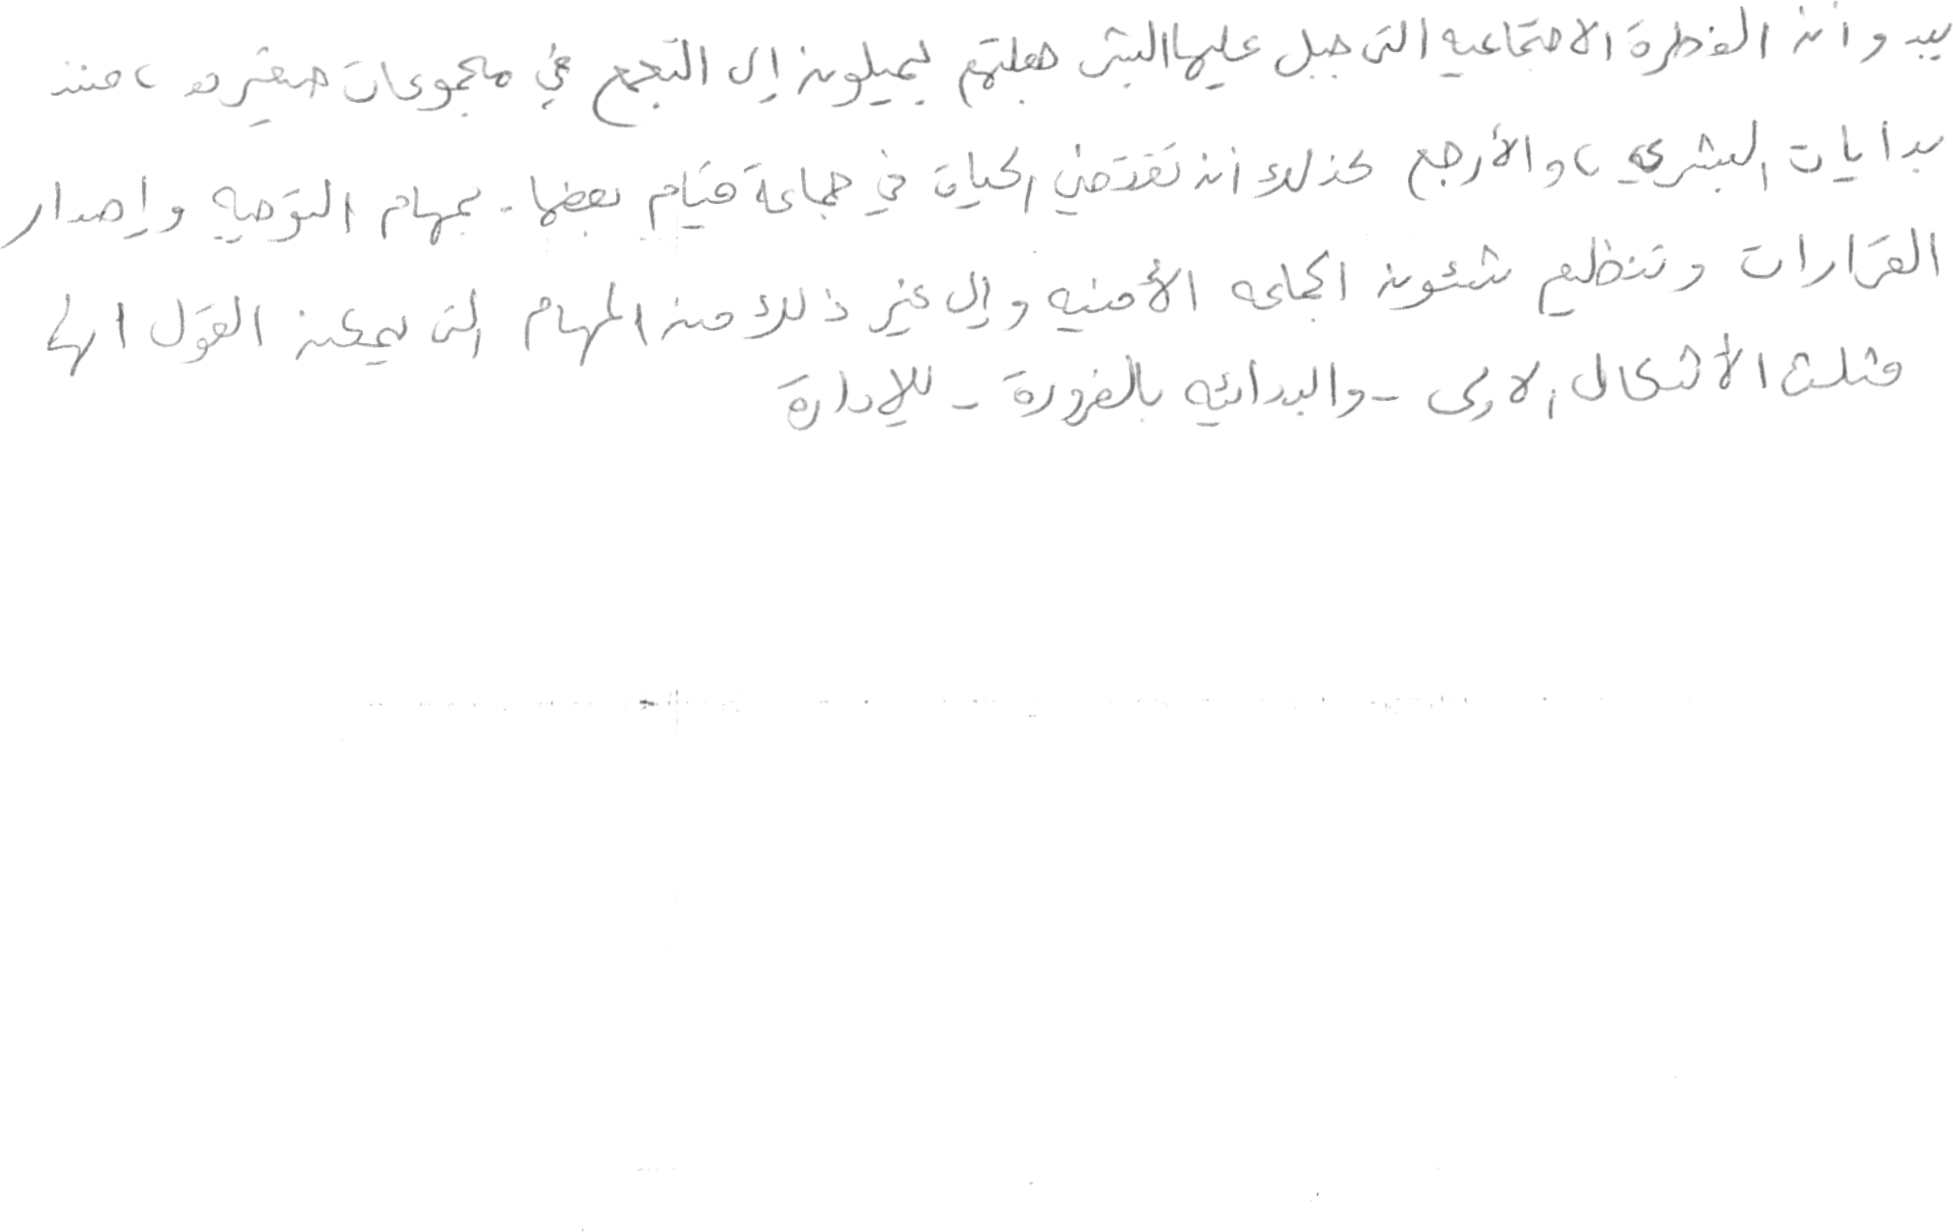 يبدو أن الفطرة الاجتماعيه التى جبل عليها البشر جعلتهم يميلون إلى التجمع في مجموعات صغيره ، منذ
بدايات البشرية ، والأرجع كذلك أن تقتضي الحياة في جماعة قيام بعضها - بمهام التوجيه وإصدار
القرارات وتنظيم شئون الجماعه الأمنيه وإلى غير ذلك من المهام التى يمكن القول انها
مثلت الأشكال الاولى - والبدائيه بالضرورة - للإدارة